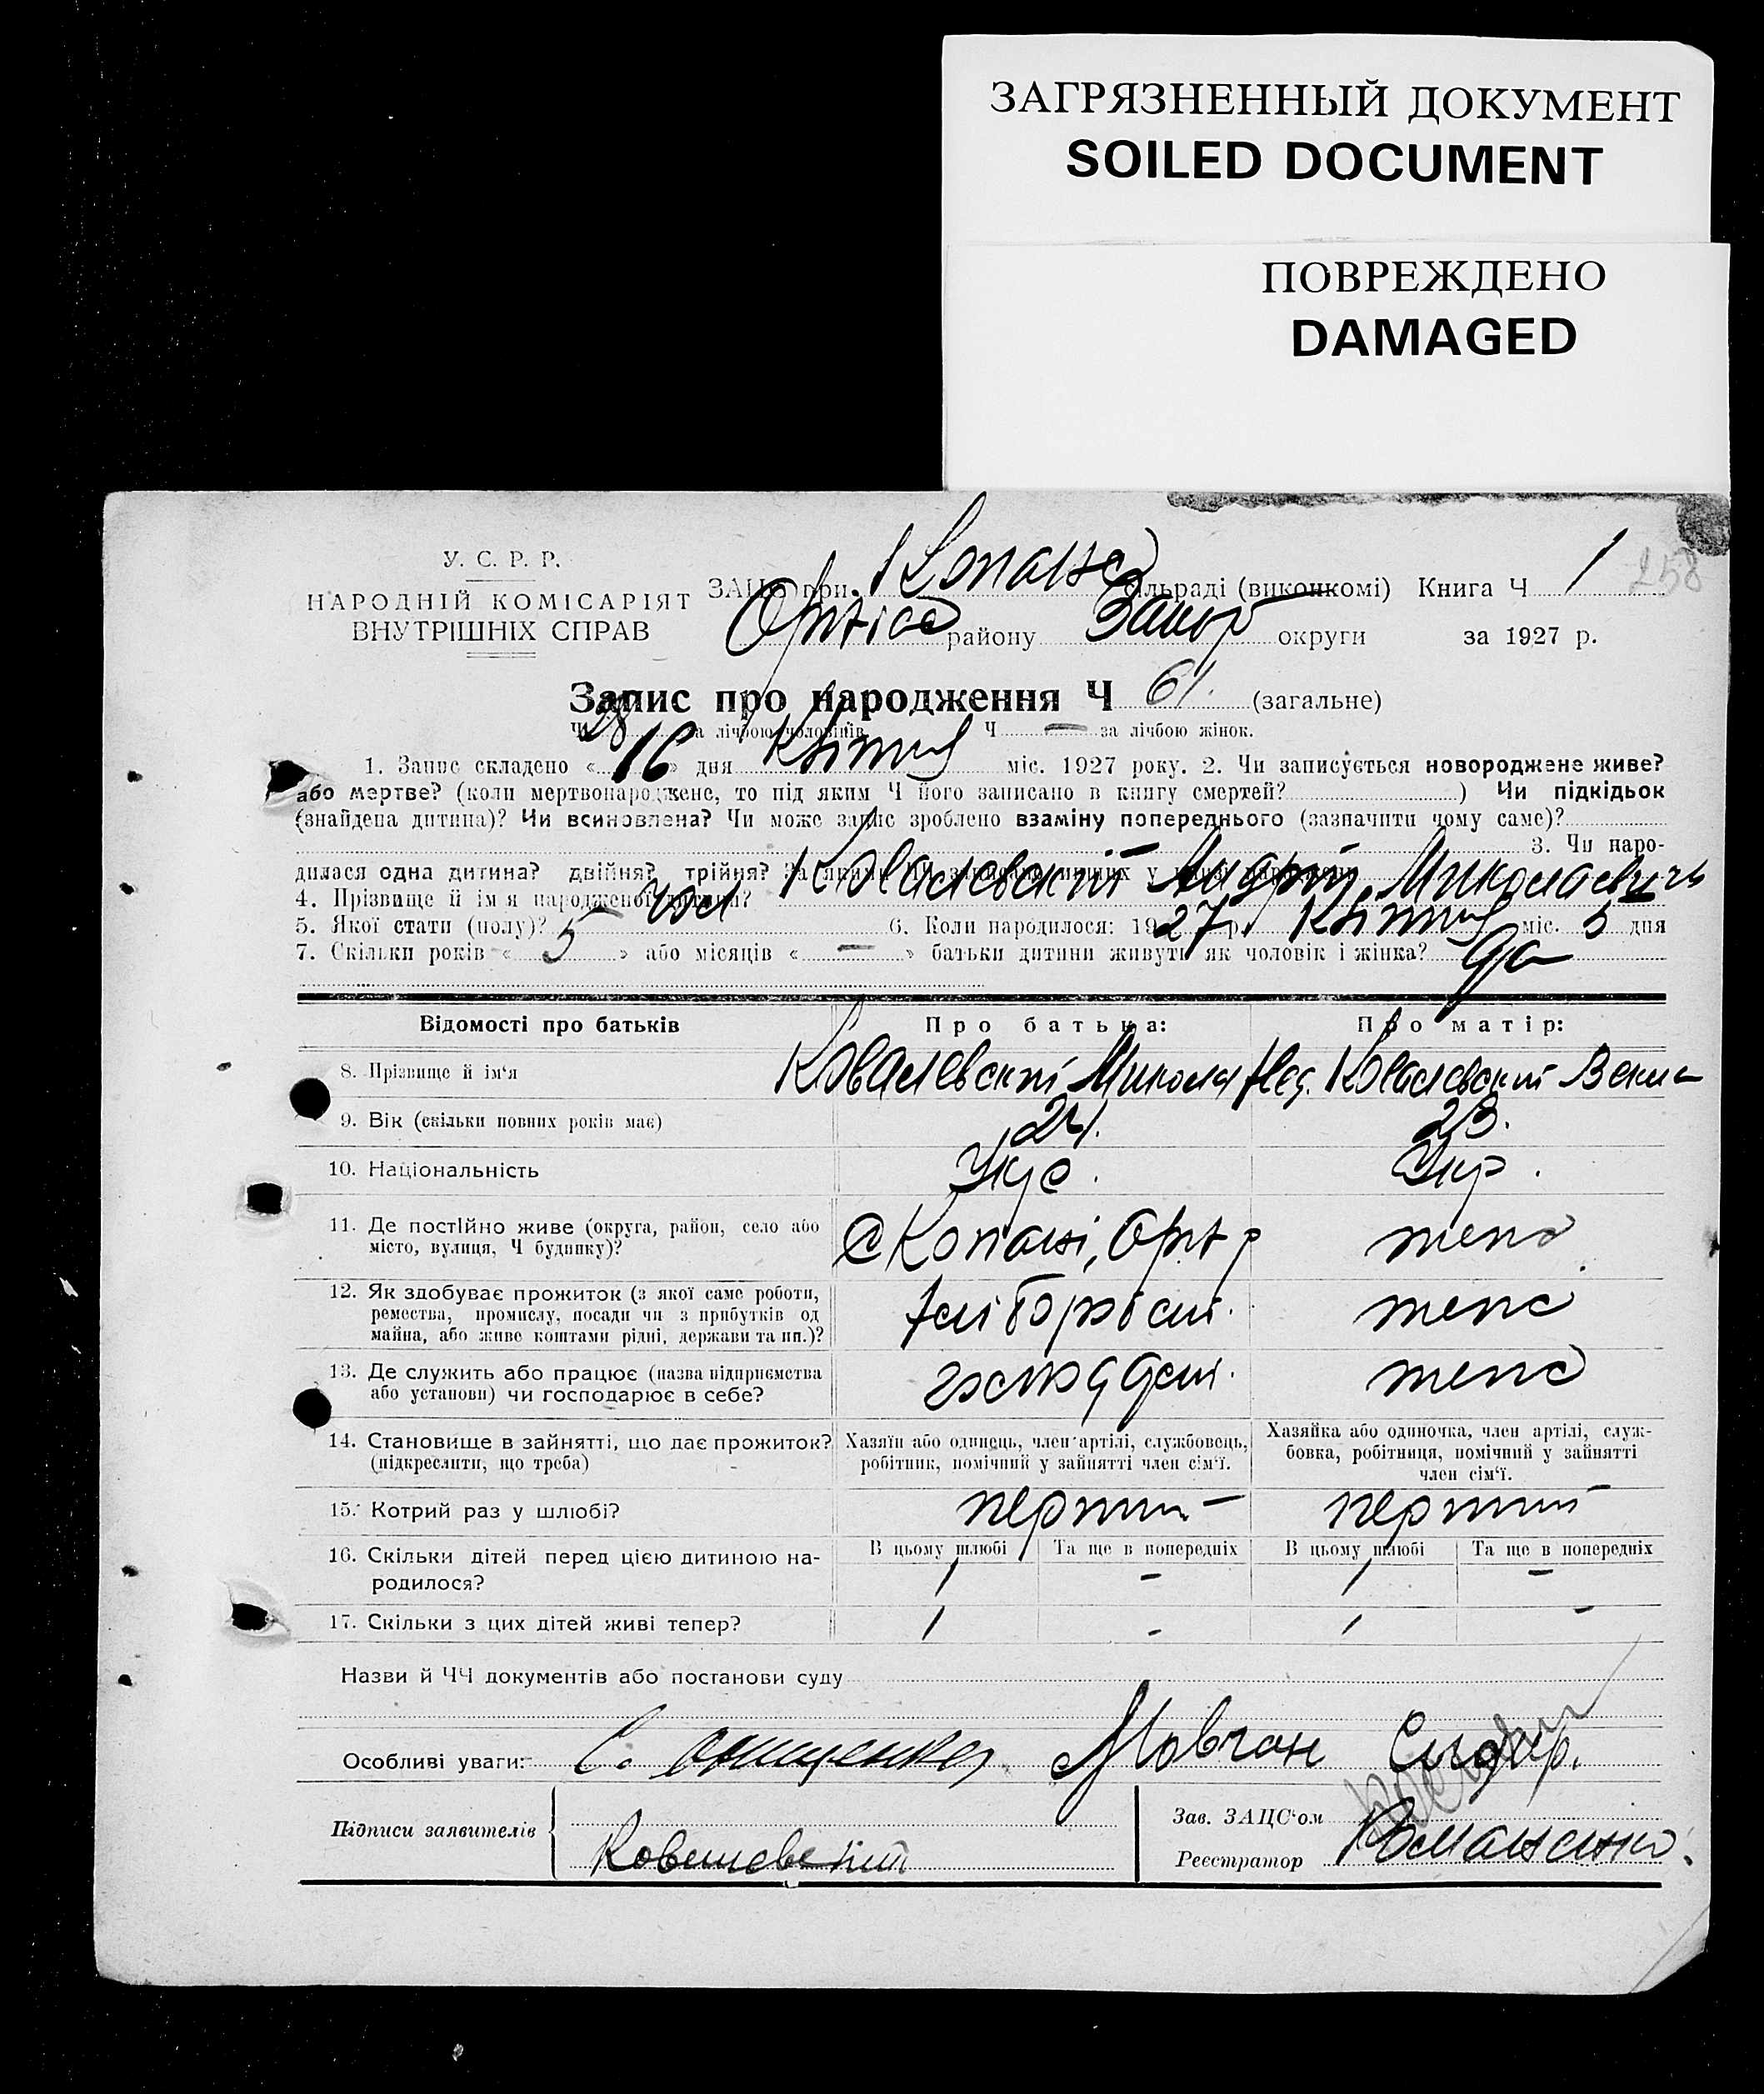 ЗАГРЯЗНЕННЫЙ ДОКУМЕНТ
SOILED DOCUMENT
ПОВРЕЖДЕНО
DAMAGED
У. С. Р. Р.
НАРОДНІЙ КОМІСАРІЯТ
ВНУТРІШНІХ СПРАВ
ЗАЦС при Копанс сільраді (виконкомі) Книга Ч 1 258
району Запор округи за 1927 р.
Запис про народження Ч 61. (загальне)
Ч 28 за лічбою чоловіків Ч — за лічбою жінок.
1. Запис складено «16» дня Квітня міс. 1927 року. 2. Чи записується новороджене живе?
або мертве? (коли мертвонароджене, то під яким Ч його записано в книгу смертей? ) Чи підкідьок
(знайдена дитина)? Чи всиновлена? Чи може запис зроблено взаміну попереднього (зазначити чому саме)?
3. Чи наро-
дилася одна дитина? двійня? трійня?
4. Прізвище й ім'я народженої дитини? Ковалевский Андрій Миколаевичь
5. Якої стати (полу)? чол 6. Коли народилося: 1927 р. Квітня міс. 5 дня
7. Скільки років «5» або місяців «—» батьки дитини живуть як чоловік і жінка? да
Відомості про батьків Про батька: Про матір:
8. Прізвище й ім'я Ковалевский Микола Ковалевский
9. Вік (скільки повних років має) 24. 23.
10. Національність Укр. Укр.
11. Де постійно живе (округа, район, село або
місто, вулиця, Ч будинку)? с Копані, Орт р тепс
12. Як здобуває прожиток (з якої саме роботи,
ремества, промислу, посади чи з прибутків од
майна, або живе коштами рідні, держави та ин.)? тепс
13. Де служить або працює (назва підприємства
або установи) чи господарює в себе? тепс
14. Становище в зайнятті, що дає прожиток?
(підкреслити, що треба)
Хазяїн або одинець, член артілі, службовець,
робітник, помічний у зайнятті член сім'ї.
Хазяйка або одиночка, член артілі, служ-
бовка, робітниця, помічний у зайнятті
член сім'ї.
15. Котрий раз у шлюбі? перший перший
16. Скільки дітей перед цією дитиною на-
родилося?
В цьому шлюбі Та ще в попередніх В цьому шлюбі Та ще в попередніх
1 - 1 -
17. Скільки з цих дітей живі тепер? 1 - 1 -
Назви й ЧЧ документів або постанови суду
Особливі уваги: С. Онищенко, Мовчан Сидір.
Підписи заявителів Ковалевский
Зав. ЗАЦС'ом
Реєстратор Романенко.